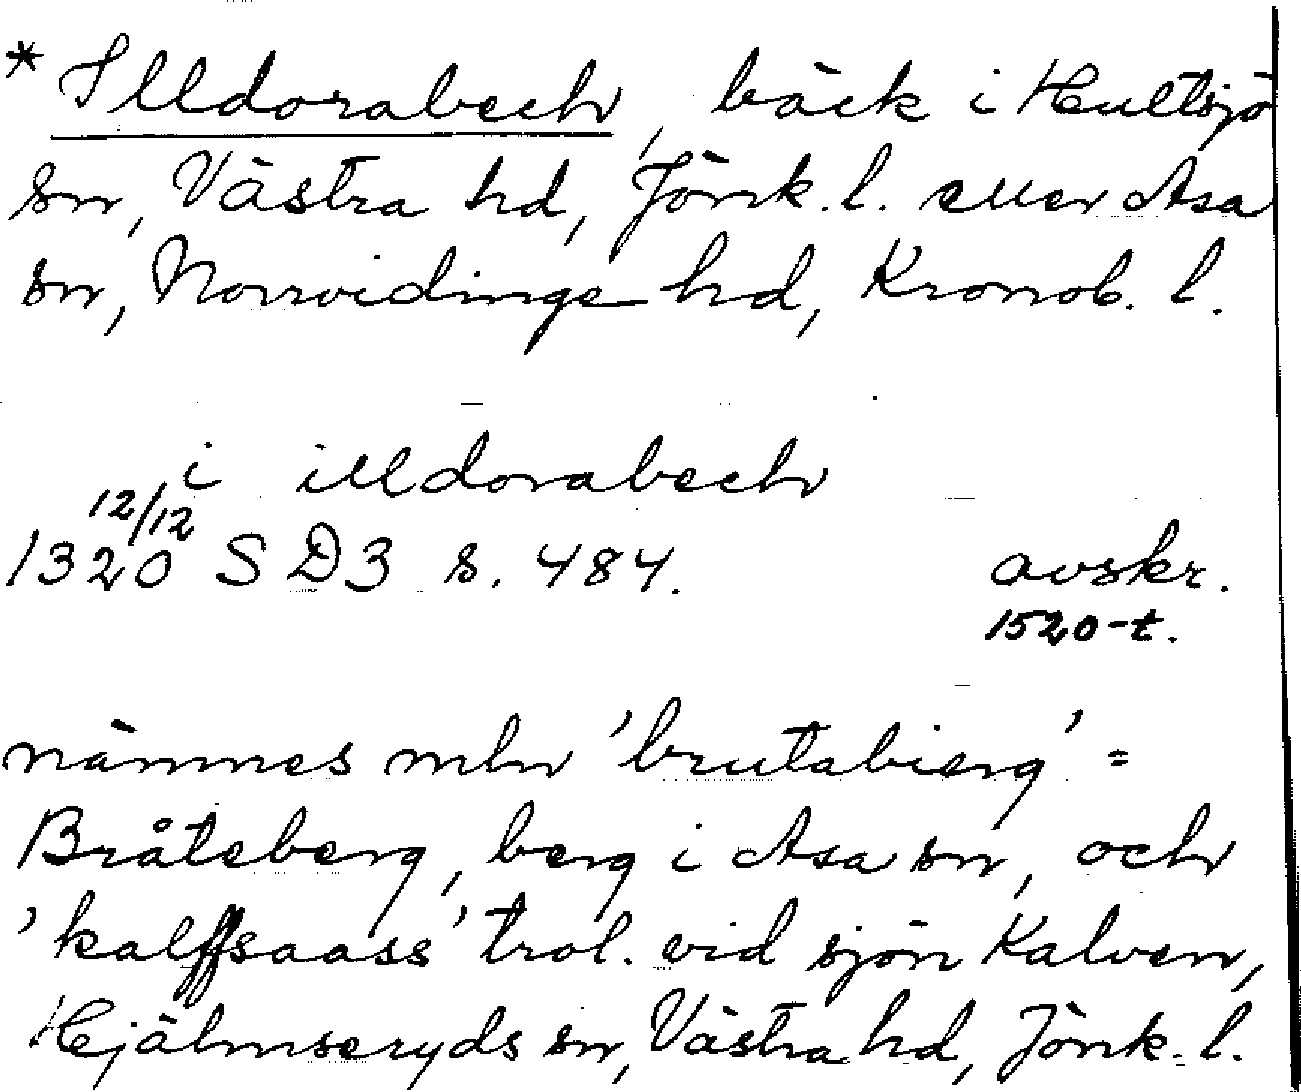 * Illdorabech, bäck i Hultsjö
sn, Västra hd, Jönk. l. eller Asa
sn, Norrvidinge hd, Kronob. l.
i illdorabech
12/12
1320 SD3 s. 484. avskr.
1520-t.
nämnes mln 'brutabierg' =
Bråteberg, berg i Asa sn, och
'kalffsaass' trol. vid sjön Kalven,
Hjälmseryds sn, Västra hd, Jönk. l.